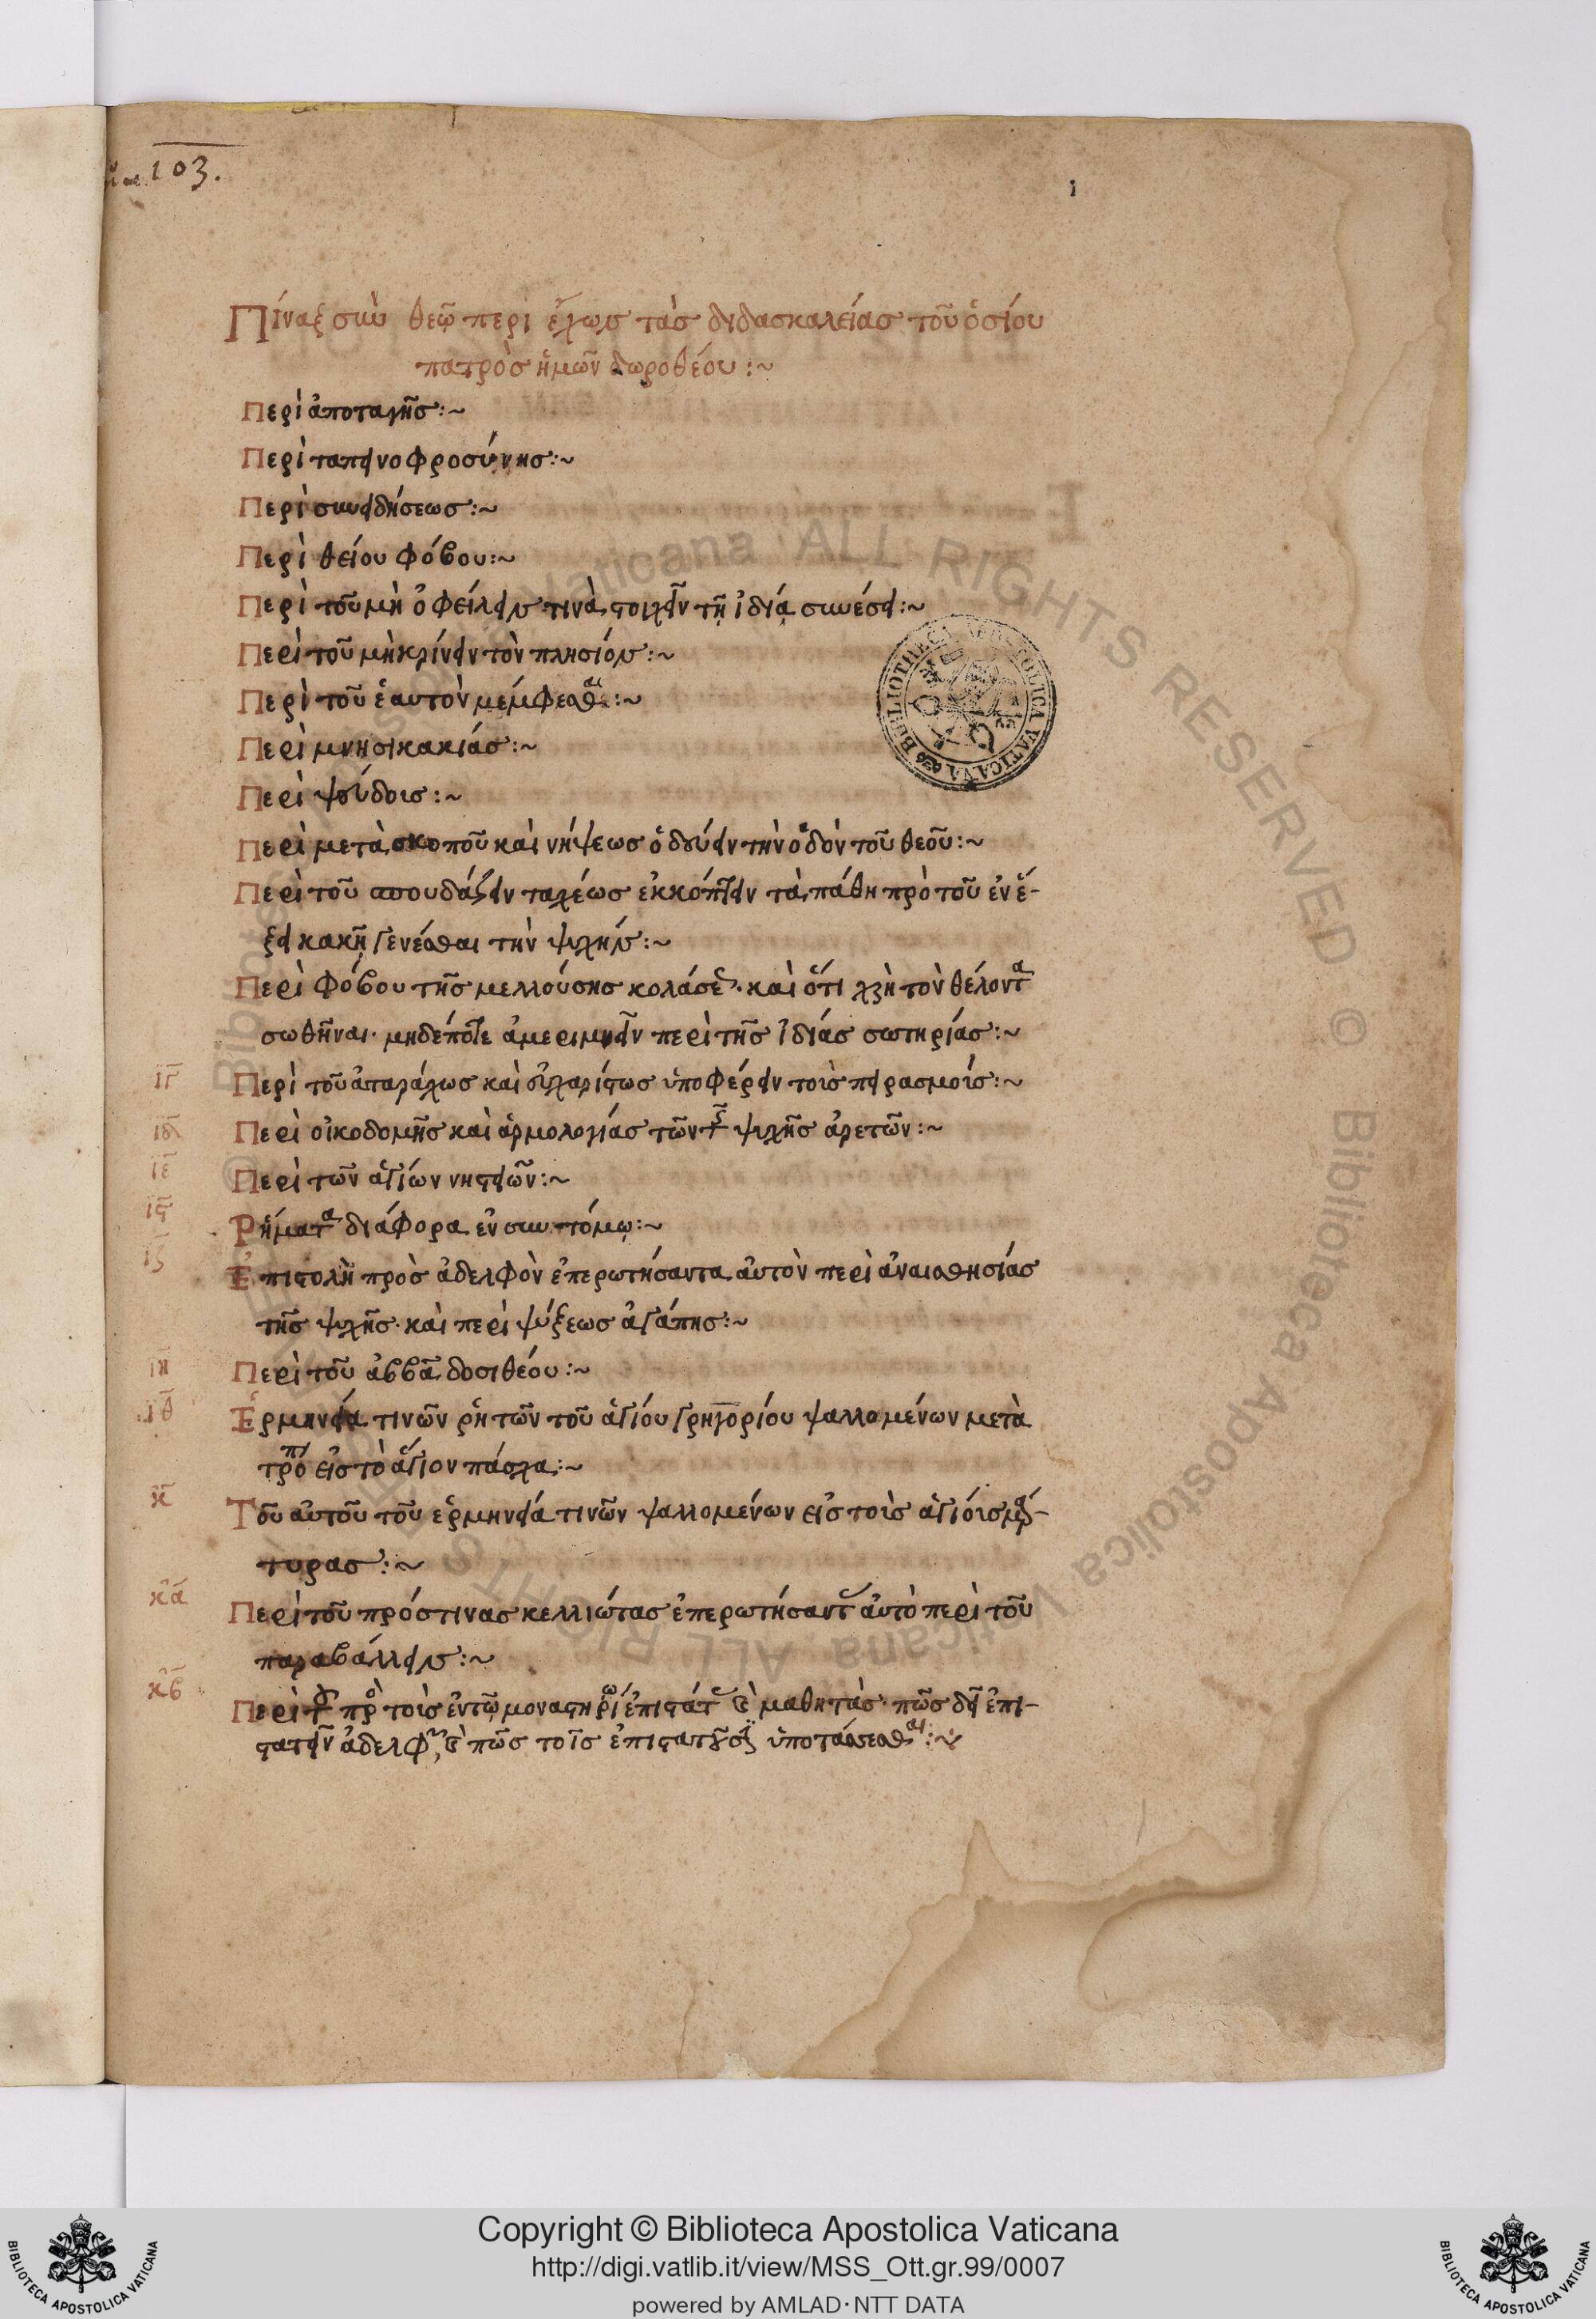 103.
1
Πίναξ σὺν θεῷ περιέχων τὰς διδασκαλείας τοῦ ὁσίου
πατρὸς ἡμῶν δωροθέου :~
Περὶ ἀποταγῆς :~
Περὶ ταπεινοφροσύνης :~
Περὶ συνειδήσεως :~
Περὶ θείου φόβου :~
Περὶ τοῦ μὴ ὀφείλειν τινὰ στοιχεῖν τῇ ἰδίᾳ συνέσει :~
Περὶ τοῦ μὴ κρίνειν τὸν πλησίον :~
Περὶ τοῦ ἑαυτὸν μέμφεσθαι :~
Περὶ μνησικακίας :~
Περὶ ψεύδους :~
Περὶ μετὰ σκοποῦ καὶ νήψεως ὁδεύειν τὴν ὁδὸν τοῦ θεοῦ :~
Περὶ τοῦ σπουδάζειν ταχέως ἐκκόπτειν τὰ πάθη πρὸ τοῦ ἐν ἕ-
ξει κακῇ γενέσθαι τὴν ψυχήν :~
Περὶ φόβου τῆς μελλούσης κολάσεως· καὶ ὅτι χρὴ τὸν θέλοντα
σωθῆναι· μηδέποτε ἀμεριμνεῖν περὶ τῆς ἰδίας σωτηρίας :~
ιγ Περὶ τοῦ ἀταράχως καὶ εὐχαρίστως ὑποφέρειν τοὺς πειρασμούς :~
ιδ Περὶ οἰκοδομῆς καὶ ἁρμολογίας τῶν τῆς ψυχῆς ἀρετῶν :~
ιε Περὶ τῶν ἁγίων νηστειῶν :~
ις Ῥήματα διάφορα ἐν συντόμῳ :~
ιζ Ἐπιστολὴ πρὸς ἀδελφὸν ἐπερωτήσαντα αὐτὸν περὶ ἀναισθησίας
τῆς ψυχῆς· καὶ περὶ ψύξεως ἀγάπης :~
ιη Περὶ τοῦ ἀββᾶ δοσιθέου :~
ιθ Ἑρμηνεία τινῶν ῥητῶν τοῦ ἁγίου γρηγορίου ψαλλομένων μετὰ
τροπ εἰς τὸ ἅγιον πάσχα :~
κ Τοῦ αὐτοῦ τοῦ ἑρμηνεία τινῶν ψαλλομένων εἰς τοὺς ἁγίους μάρ-
τυρας :~
κα Περὶ τοῦ πρός τινας κελλιώτας ἐπερωτήσαντας αὐτὸ περὶ τοῦ
παραβάλλειν :~
κβ Περὶ τοῦ πρὸ τοὺς ἐν τῷ μοναστηρίω ἐπιστάτας καὶ μαθητὰς· πῶς δεῖ ἐπι-
στατεῖν ἀδελφῶν, καὶ πῶς τοῖς ἐπιστατοῦσι ὑποτάσσεσθαι :~
BIBLIOTHECA APOSTOLICA VATICANA
© Biblioteca Apostolica Vaticana ALL RIGHTS RESERVED
Copyright © Biblioteca Apostolica Vaticana
http://digi.vatlib.it/view/MSS_Ott.gr.99/0007
powered by AMLAD·NTT DATA
BIBLIOTECA APOSTOLICA VATICANA
BIBLIOTECA APOSTOLICA VATICANA